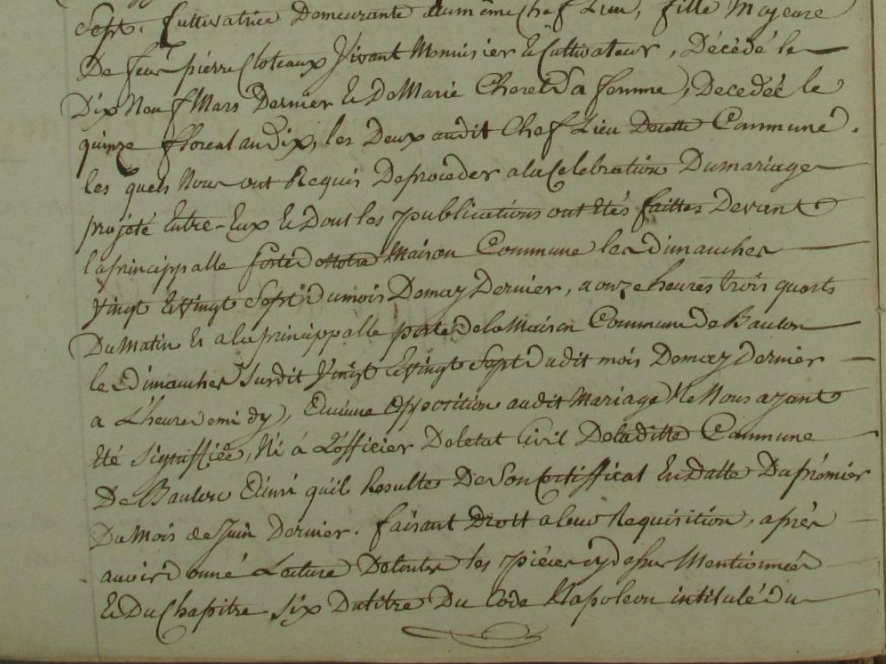 Sept. Cultivatrice Demeurante au même Chef Lieu, fille Majeure
De feus pierre Cloteaux Vivant Menuisier & Cultivateur, Décédé le
Dix Neuf Mars Dernier & De Marie Choret Sa femme, Decedée le
quinze floreal an Dix, les Deux audit Chef Lieu De cette Commune.
les quels Nous ont Requis De proceder a la Celebration Du mariage
projeté Entre-Eux & Dont les publications ont Etés faittes Devant
la principalle porte De Notre Maison Commune les dimanches
Vingt & vingt Sept Du mois De may Dernier, a onze heures trois quarts
Du Matin & a la princippalle porte De la Maison Commune de Baulon
les Dimanches Susdit Vingt & vingt Sept Dudit mois De may Dernier
a L'heure De midy, Aucune Opposition audit Mariage Ne Nous ayant
Eté Signiffiée, Ni à L'officier De l'etat Civil De la ditte Commune
De Baulon Ainsi qu'il Resulte De Son Certifficat En Datte Du prémier
Du Mois de Juin Dernier. faisant Droit a leur Requisition, aprés
avoir Donné Lecture De toutes les piéces cy dessus Mentionnées
& Du Chapitre Six Du titre Du Code Napoleon intitulé du